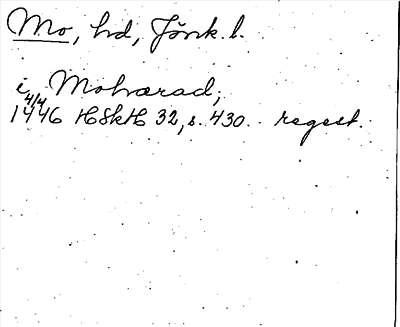 Mo, hd, Jönk. l.
i Mohærad;
4/4
1446 HSkH 32, s. 430. regest.